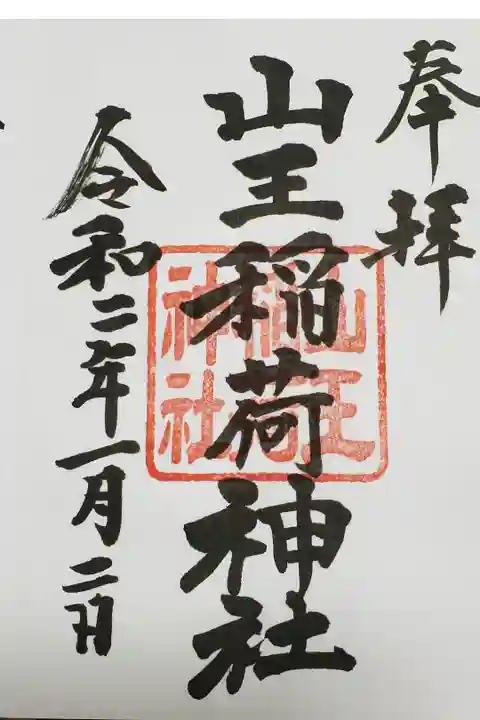 奉拝
山王稲荷神社
山王稲荷神社
令和二年一月二日